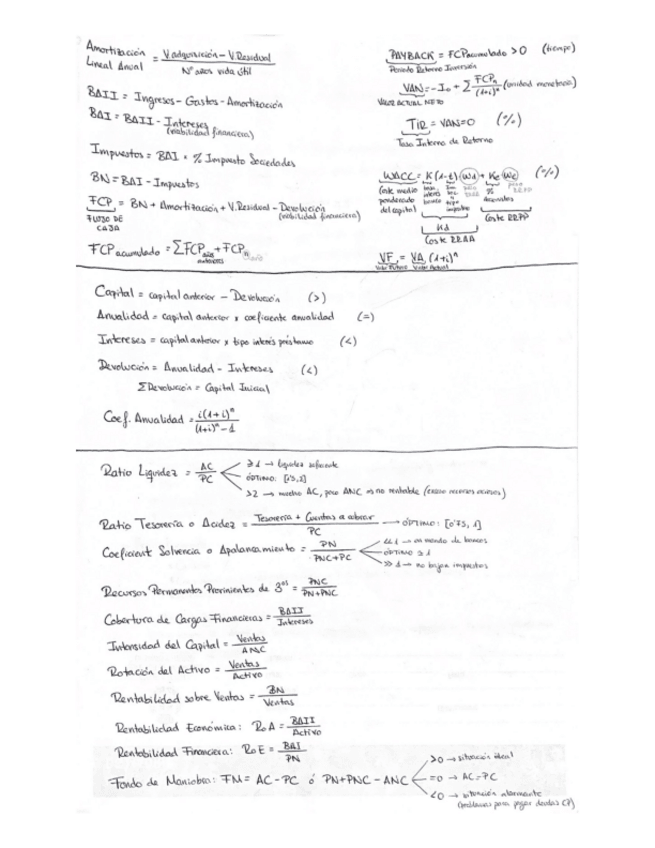 Amortización Lineal Anual = V.adquisición - V.Residual / Nº años vida útil
BAII = Ingresos - Gastos - Amortización
BAI = BAII - Intereses
(viabilidad financiera)
Impuestos = BAI × % Impuesto Sociedades
BN = BAI - Impuestos
FCP = BN + Amortización + V.Residual - Devolución
(viabilidad financiera)
FLUJO DE CAJA
FCP acumulado = ΣFCP años anteriores + FCP n
PAYBACK = FCP acumulado > 0 (tiempo)
Periodo Retorno Inversión
VAN = -I₀ + Σ FCPn / (1+i)ⁿ (unidad monetaria)
VALOR ACTUAL NETO
TIR = VAN=0 (%)
Tasa Interno de Retorno
WACC = K(1-t)(Wd) + Ke(We) (%)
Coste medio ponderado del capital
Kd
Coste RRAA
Coste RRPP
VF = VA (1+i)ⁿ
Valor Futuro Valor Actual
Capital = capital anterior - Devolución (>)
Anualidad = capital anterior x coeficiente anualidad (=)
Intereses = capital anterior x tipo interés préstamo (<)
Devolución = Anualidad - Intereses (<)
ΣDevolución = Capital Inicial
Coef. Anualidad = i(1+i)ⁿ / (1+i)ⁿ - 1
Ratio Liquidez = AC / PC
≥1 → liquidez suficiente
ÓPTIMO: [1'5,2]
>2 → mucho AC, pero ANC es no rentable (exceso recursos ociosos)
Ratio Tesorería o Acidez = Tesorería + Cuentas a cobrar / PC → ÓPTIMO: [0'75, 1]
Coeficient Solvencia o Apalancamiento = PN / PNC+PC
<<1 → en mando de bancos
ÓPTIMO ≥1
>>1 → no bajan impuestos
Recursos Permanentes Provinientes de 3ᵒˢ = PNC / PN+PNC
Cobertura de Cargas Financieras = BAII / Intereses
Intensidad del Capital = Ventas / ANC
Rotación del Activo = Ventas / Activo
Rentabilidad sobre Ventas = BN / Ventas
Rentabilidad Económica: RoA = BAII / Activo
Rentabilidad Financiera: RoE = BAI / PN
Fondo de Maniobra: FM = AC - PC ó PN+PNC - ANC
>0 → situación ideal
=0 → AC=PC
<0 → situación alarmante
(problemas para pagar deudas CP)